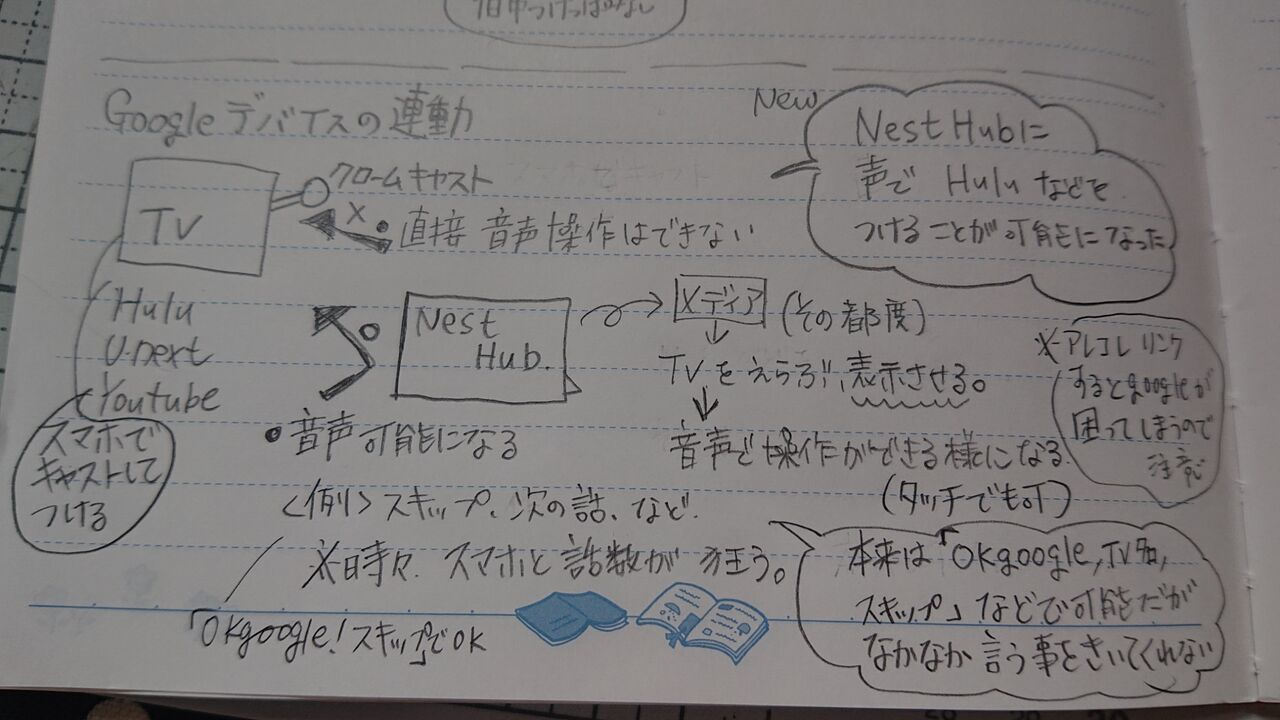 1日中つけっぱなし
Google デバイスの連動
New
Nest Hubに
声で Hulu などを
つけることが可能になった
TV
クロームキャスト
×
・直接 音声操作はできない
Hulu
U-next
Youtube
スマホで
キャストして
つける
Nest
Hub.
メディア (その都度)
TVをえらぶ、表示させる。
音声で操作ができる様になる.
(タッチでも可)
※アレコレリンク
するとgoogleが
困ってしまうので
注意
・音声可能になる
<例> スキップ、次の話、など.
※時々. スマホと話数が 狂う。
「OKgoogle!スキップ」でOK
本来は「OKgoogle,TV名,
スキップ」などで可能だが
なかなか言う事をきいてくれない